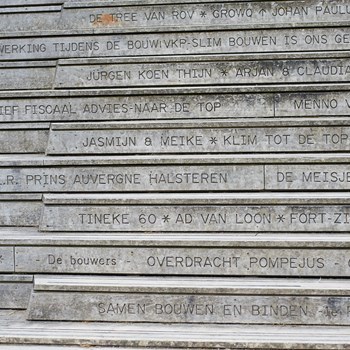 DE TREE VAN ROV * GROWQ * JOHAN PAULU
WERKING TIJDENS DE BOUW: VKP-SLIM BOUWEN IS ONS GE
JURGEN KOEN THIJN * ARJAN & CLAUDIA
IEF FISCAAL ADVIES-NAAR DE TOP MENNO V
JASMIJN & MEIKE * KLIM TOT DE TOP
.R. PRINS AUVERGNE HALSTEREN DE MEISJE
TINEKE 60 * AD VAN LOON * FORT-ZI
- De bouwers OVERDRACHT POMPEJUS
SAMEN BOUWEN EN BINDEN